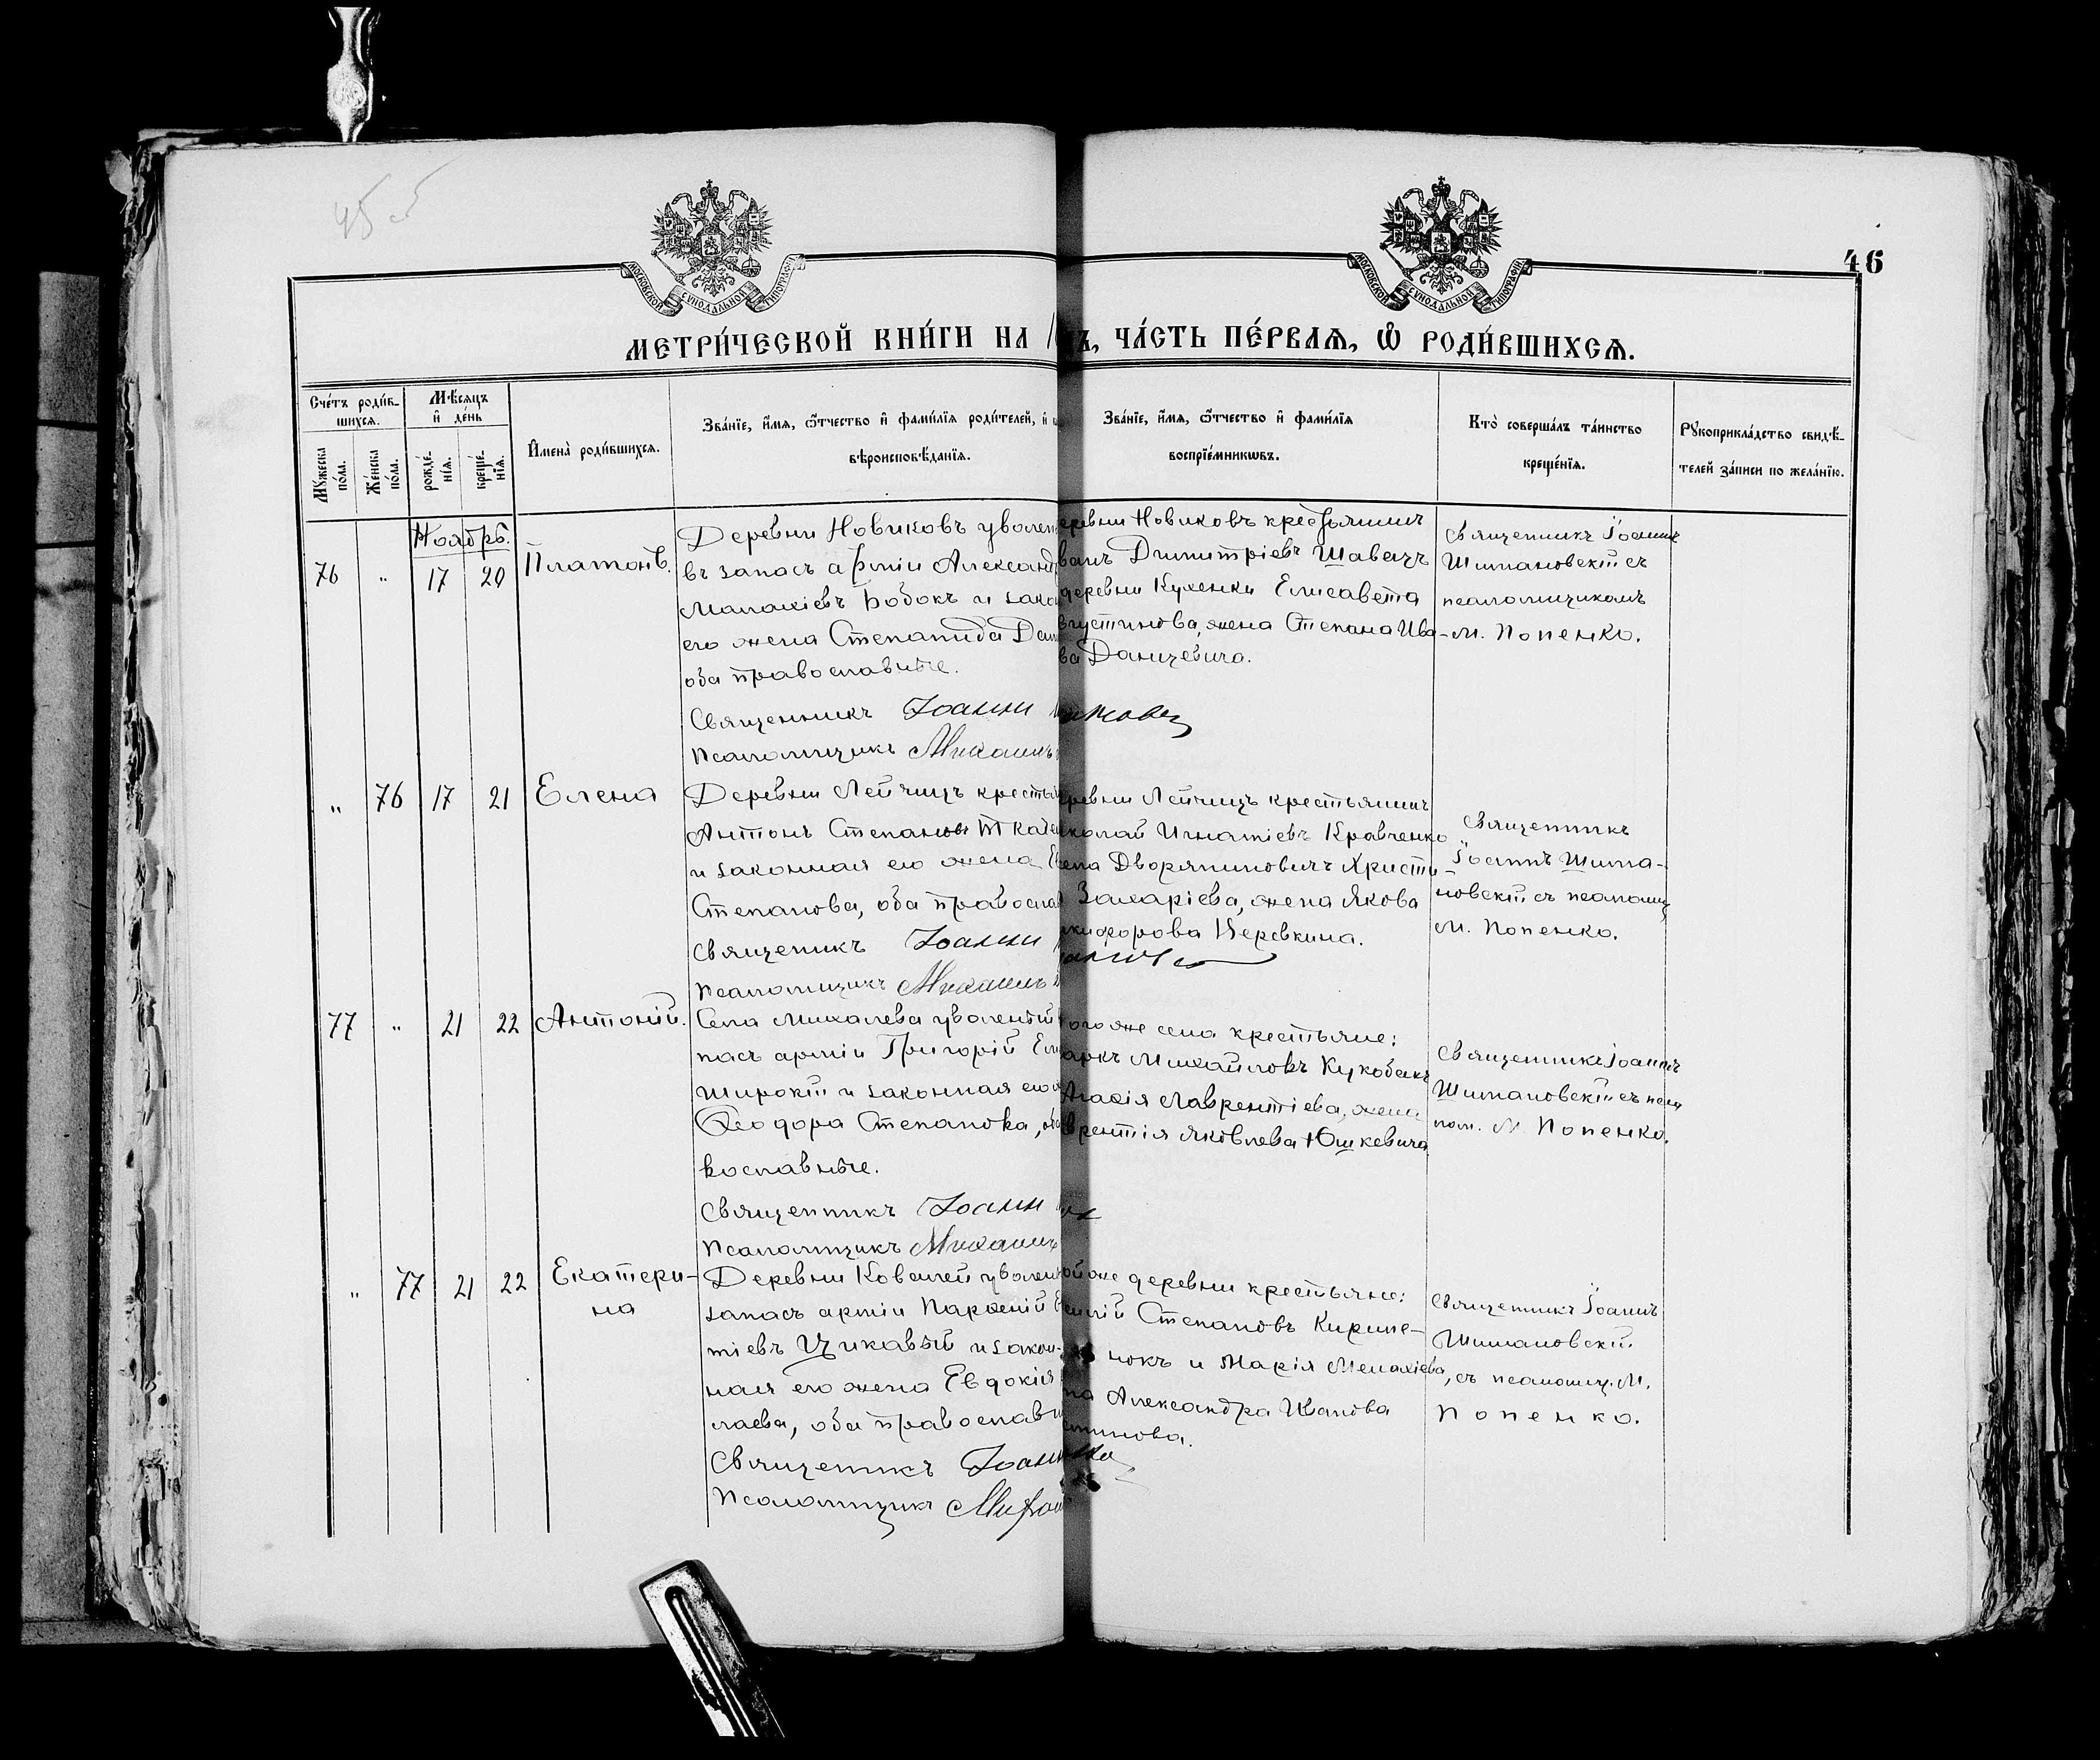 46
МОСКОВСКОЙ СУНОДАЛЬНОЙ ТИПОГРАФІИ
МОСКОВСКОЙ СУНОДАЛЬНОЙ ТИПОГРАФІИ
МЕТРИ́ЧЕСКОЙ КНИ́ГИ НА
ЧА́СТЬ ПЕ́РВАѦ, Ѽ РОДИ́ВШИХСѦ.
Сче́тъ роди́в-
шихся.
Мѣ́сяцъ
и҆ де́нь
Мꙋ́жеска
по́ла.
Же́нска
по́ла.
рожде́-
нїѧ.
креще́-
нїѧ.
И҆мена̀ роди́вшихсѧ.
Зва́нїе, и҆́мѧ, ѻ҆́тчество и҆ фами́лїѧ роди́телей, и҆
вѣроисповѣ́данїѧ.
Зва́нїе, и҆́мѧ, ѻ҆́тчество и҆ фами́лїѧ
воспрїе́мникѡвъ.
Кто̀ соверша́лъ та́инство
креще́нїѧ.
Рꙋкоприкла́дство свидѣ́-
телей за́писи по жела́нїю.
Ноябрь.
76 " 17 20
Платонъ.
Деревни Новиковъ уволен
въ запасъ арміи Александ
Малахіевъ Бобокъ и зако
его жена Степанида Дан
оба православные.
Священникъ Іоанн
Псаломщикъ Михаилъ
еревни Новиковъ крестьянинъ
ванъ Димитріевъ Шавецъ
деревни Кухенки Елисавета
вгустинова, жена Степана Ива-
ва Данцевича.
Священникъ Іоаннъ
Шимановскій съ
псаломщикомъ
М. Попенко.
" 76 17 21
Елена
Деревни Лейчицъ кресть
Антонъ Степановъ Ткаче
и законная его жена Е
Степанова, оба правосла
Священикъ Іоанн
Псаломщикъ Михаилъ
ревни Лейчицъ крестьянинъ
колай Игнатіевъ Кравченко
ена Дворяниновичъ Христи-
Захаріева, жена Якова
икифорова Веревкина.
Священникъ
Іоаннъ Шима-
новскій съ псаломщ
М. Попенко.
77 " 21 22
Антоній.
Села Михалева уволеный
пасъ арміи Григорій Ем
Широкій и законная его
Ѳеодора Степанова, оба
вославные.
Священникъ Іоанн
Псаломщикъ Михаилъ
ого же села крестьяне:
аркъ Михайловъ Кукобакъ
Агафія Лаврентіева, жена
врентія Яковлева Юшкевича
Священникъ Іоаннъ
Шимановскій съ псал
пом. М. Попенко.
" 77 21 22
Екатери-
на
Деревни Ковалей уволен
запасъ арміи Парѳеній
тіевъ Цикавый и закон-
ная его жена Евдокія
лаева, оба православн
Священникъ Іоанн
Псаломщикъ
ой же деревни крестьяне:
Степановъ Кирпе-
нокъ и Марія Мелахіева,
на Александра Иванова
стинова.
Священникъ Іоаннъ
Шимановскій
съ псаломщ. М.
Попенко.